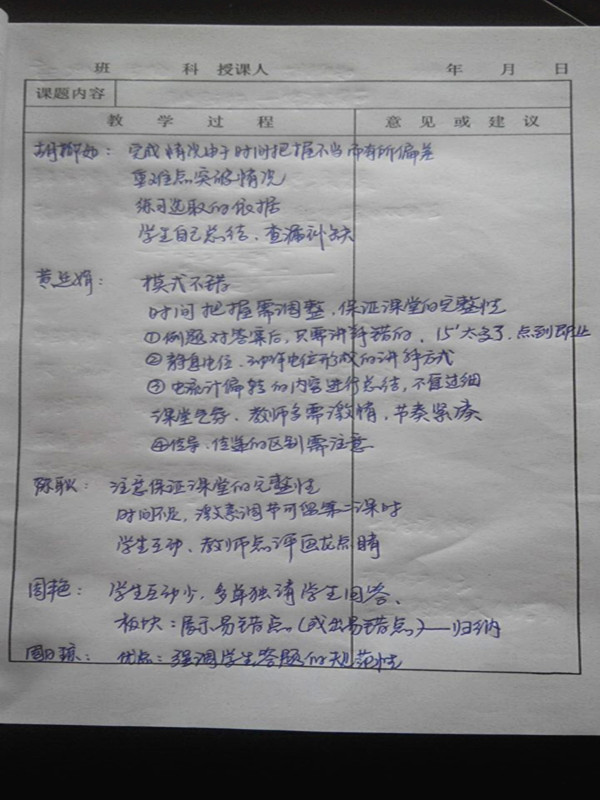 班 科 授课人 年 月 日
课题内容
教 学 过 程 意 见 或 建 议
胡柳如: 完成情况由于时间把握不当而有所偏差
重难点突破情况
练习选取的依据
学生自己总结、查漏补缺
黄 娟: 模式不错
时间把握需调整,保证课堂的完整性
①例题对答案后,只需讲解错的,15'太多了,点到即止
②静息电位、动作电位形成的讲解方式
③电流计偏转的内容进行总结,不宜过细
课堂气氛、教师多需激情,节奏紧凑
④传导、传递的区别需注意
陈耿: 注意保证课堂的完整性
时间不足,激素调节可留第二课时
学生互动、教师点评画龙点睛
周艳: 学生互动少,多单独请学生回答、
板块:展示易错点(或出易错点)——归纳
周日琼: 优点:强调学生答题的规范性